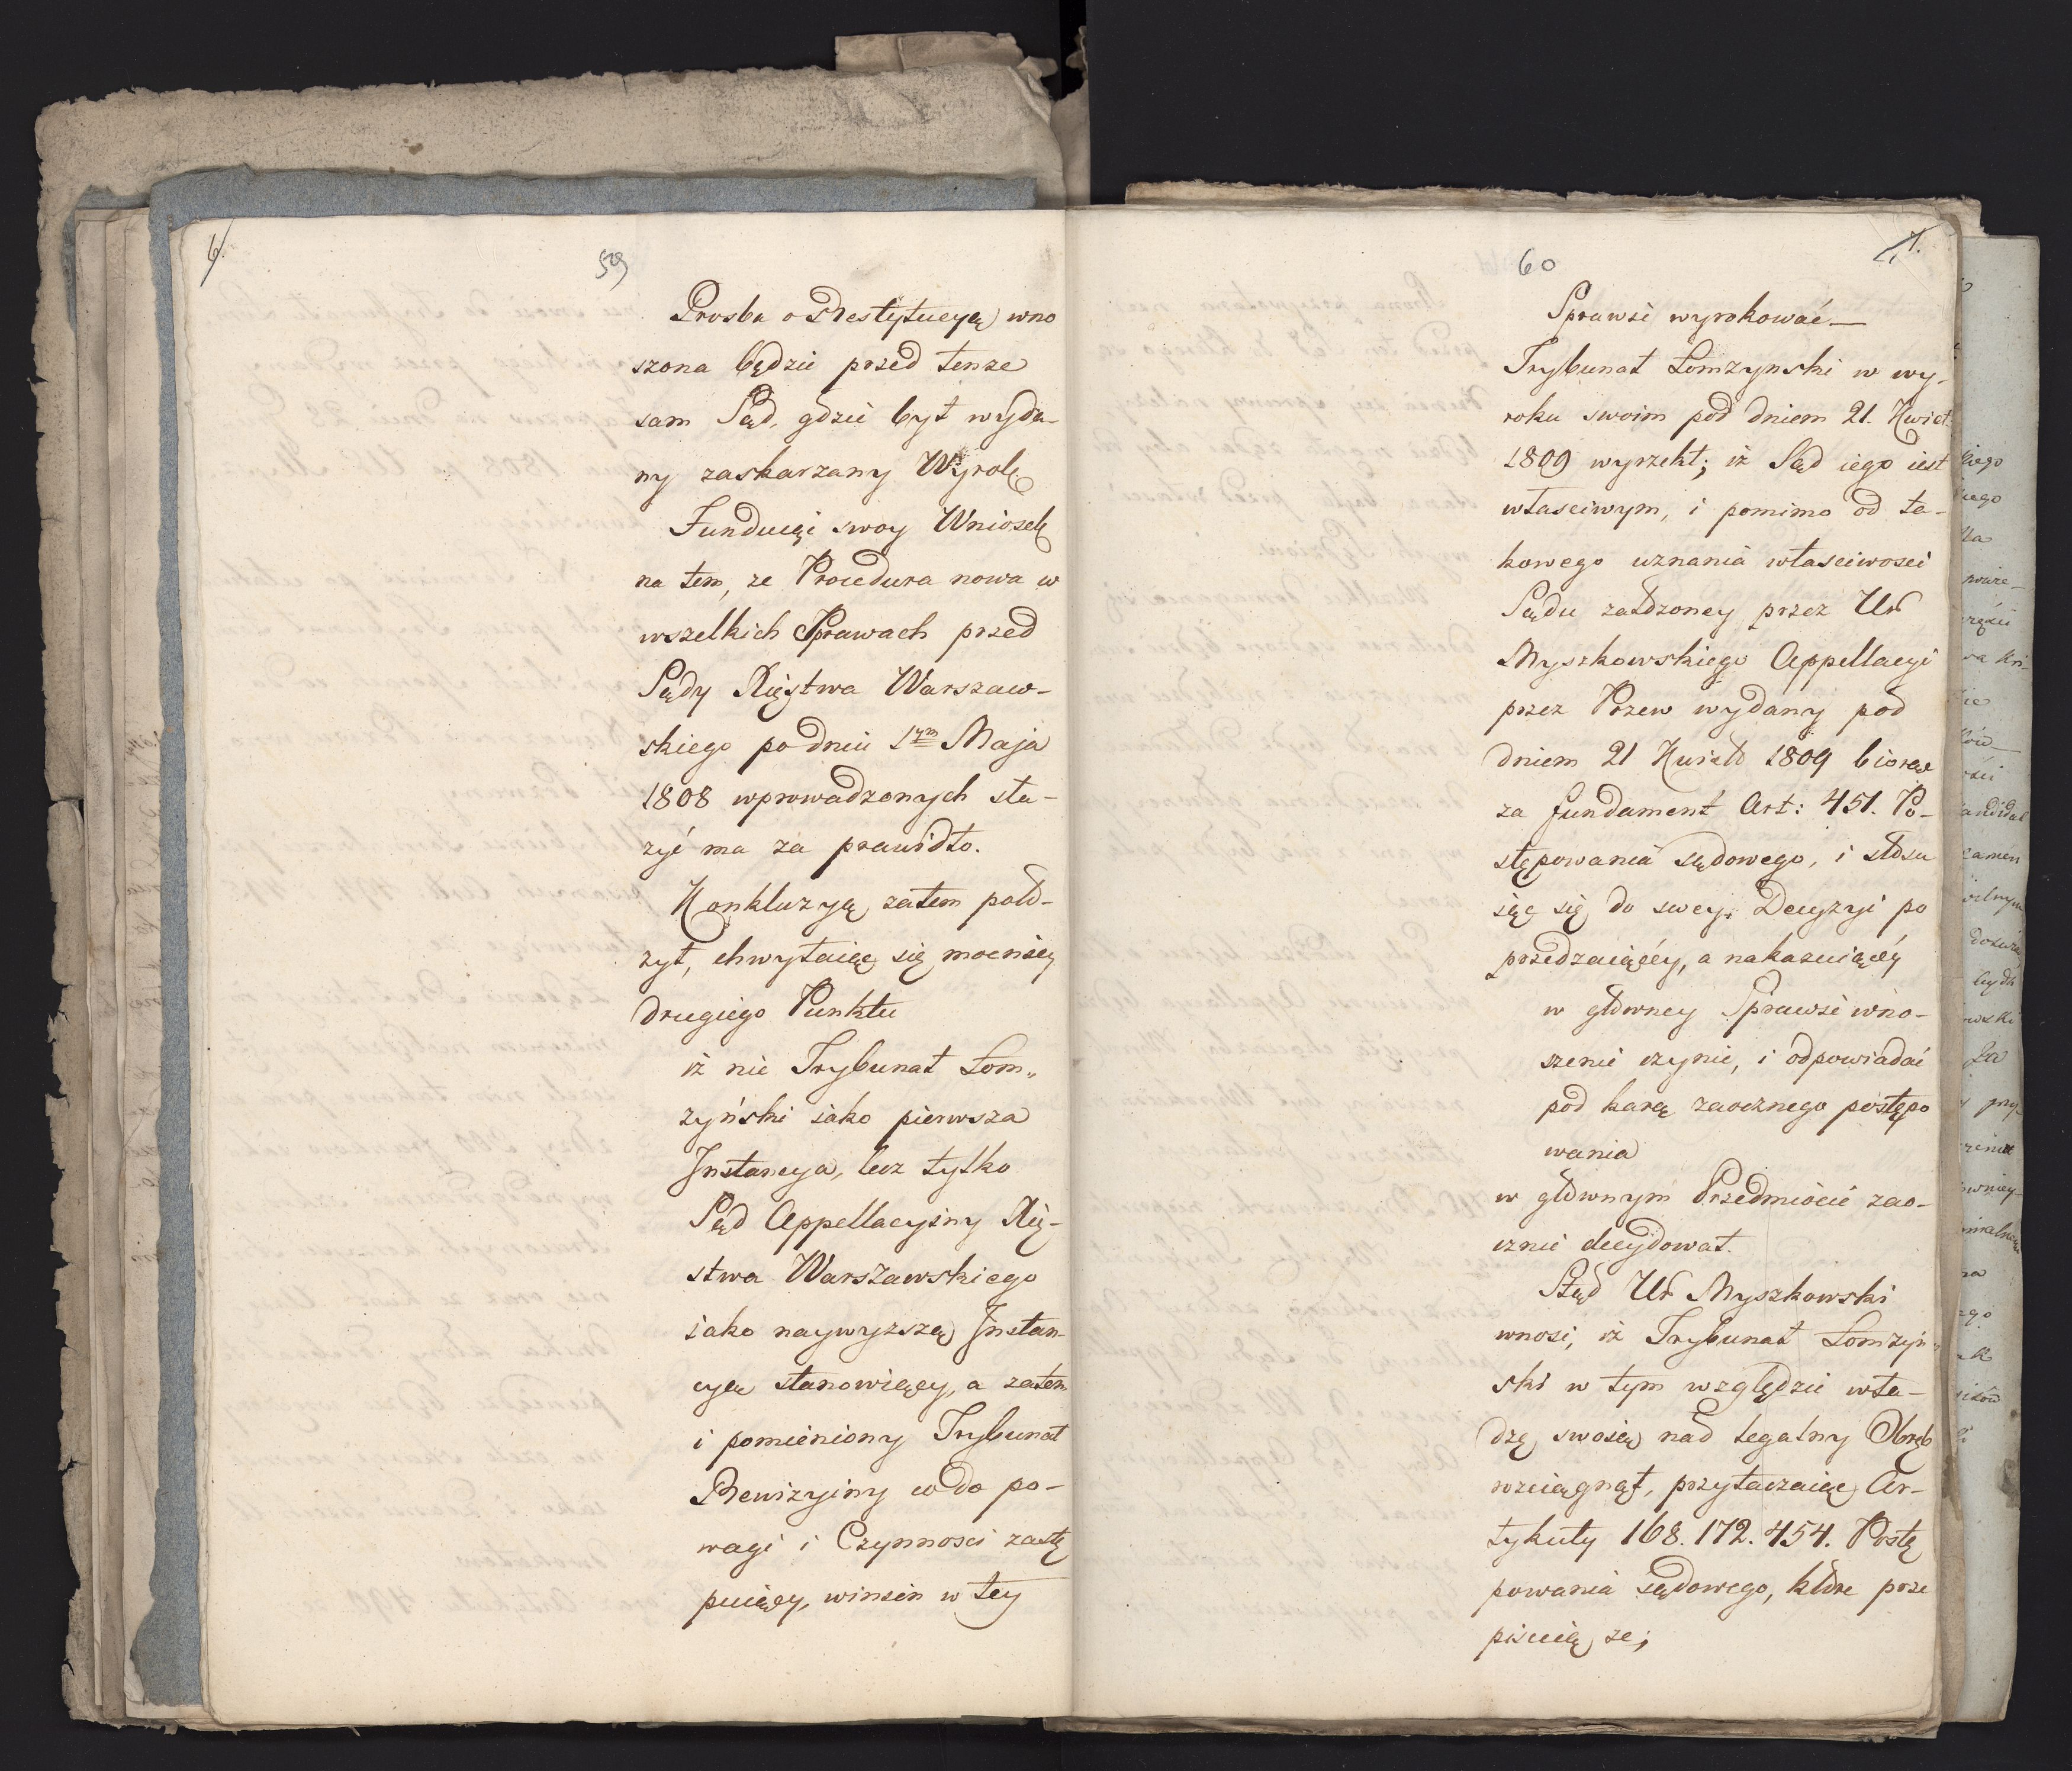 6.
59
Prosba o Restytucyą wno
szona będzie przed tenze
sam Sąd, gdzie był wyda-
ny zaskarzany Wyrok
Funduiąc swoy Wniosek
na tem, ze Procedura nowa w
wszelkich Sprawach przed
Sądy Xięstwa Warszaw-
skiego po dniu 1ym Maja
1808 wprowadzonych słu-
zyć ma za prawidło.
Konkluzyą zatem poło-
zył, chwytaiąc się mocniey
drugiego Punktu
iż nie Trybunał Łom„
zyński iako pierwsza
Instancya, lecz tylko
Sąd Appellacyiny Xię-
stwa Warszawskiego
iako naywyzszą Instan-
cyą stanowiący, a zatem
i pomieniony Trybunał
Rewizyiny co do po-
wagi i Czynnosci zastę
puiący, winien w tey
7.
60
Sprawie wyrokować —
Trybunał Łomzynski w wy-
roku swoim pod dniem 21. Kwiet.
1809 wyrzekł; iż Sąd iego iest
własciwym, i pomimo od ta-
kowego uznania własciwosci
Sądu załozoney przez Ur
Myszkowskiego Appellacyi
przez Pozew wydany pod
dniem 21 Kwiet 1809 biorąc
za fundament Art: 451. Po-
stępowania sądowego, i stosu
iąc się do swey Decyzyi po
przedzaiącéy, a nakazuiącéy
w główney Sprawie wno-
szenie czynie, i odpowiadać
pod karą zaocznego postępo
wania
w głównym Przedmiocie zao-
cznie decydował.
Ztąd Ur Myszkowski
wnosi, iż Trybunał Łomzyń
ski w tym względzie wła-
dzę swoią nad legalny Obręb
rozciągnął, przytaczaiąc Ar-
tykuły 168. 172. 454. Postę
powania sądowego, które prze
pisuią ze;